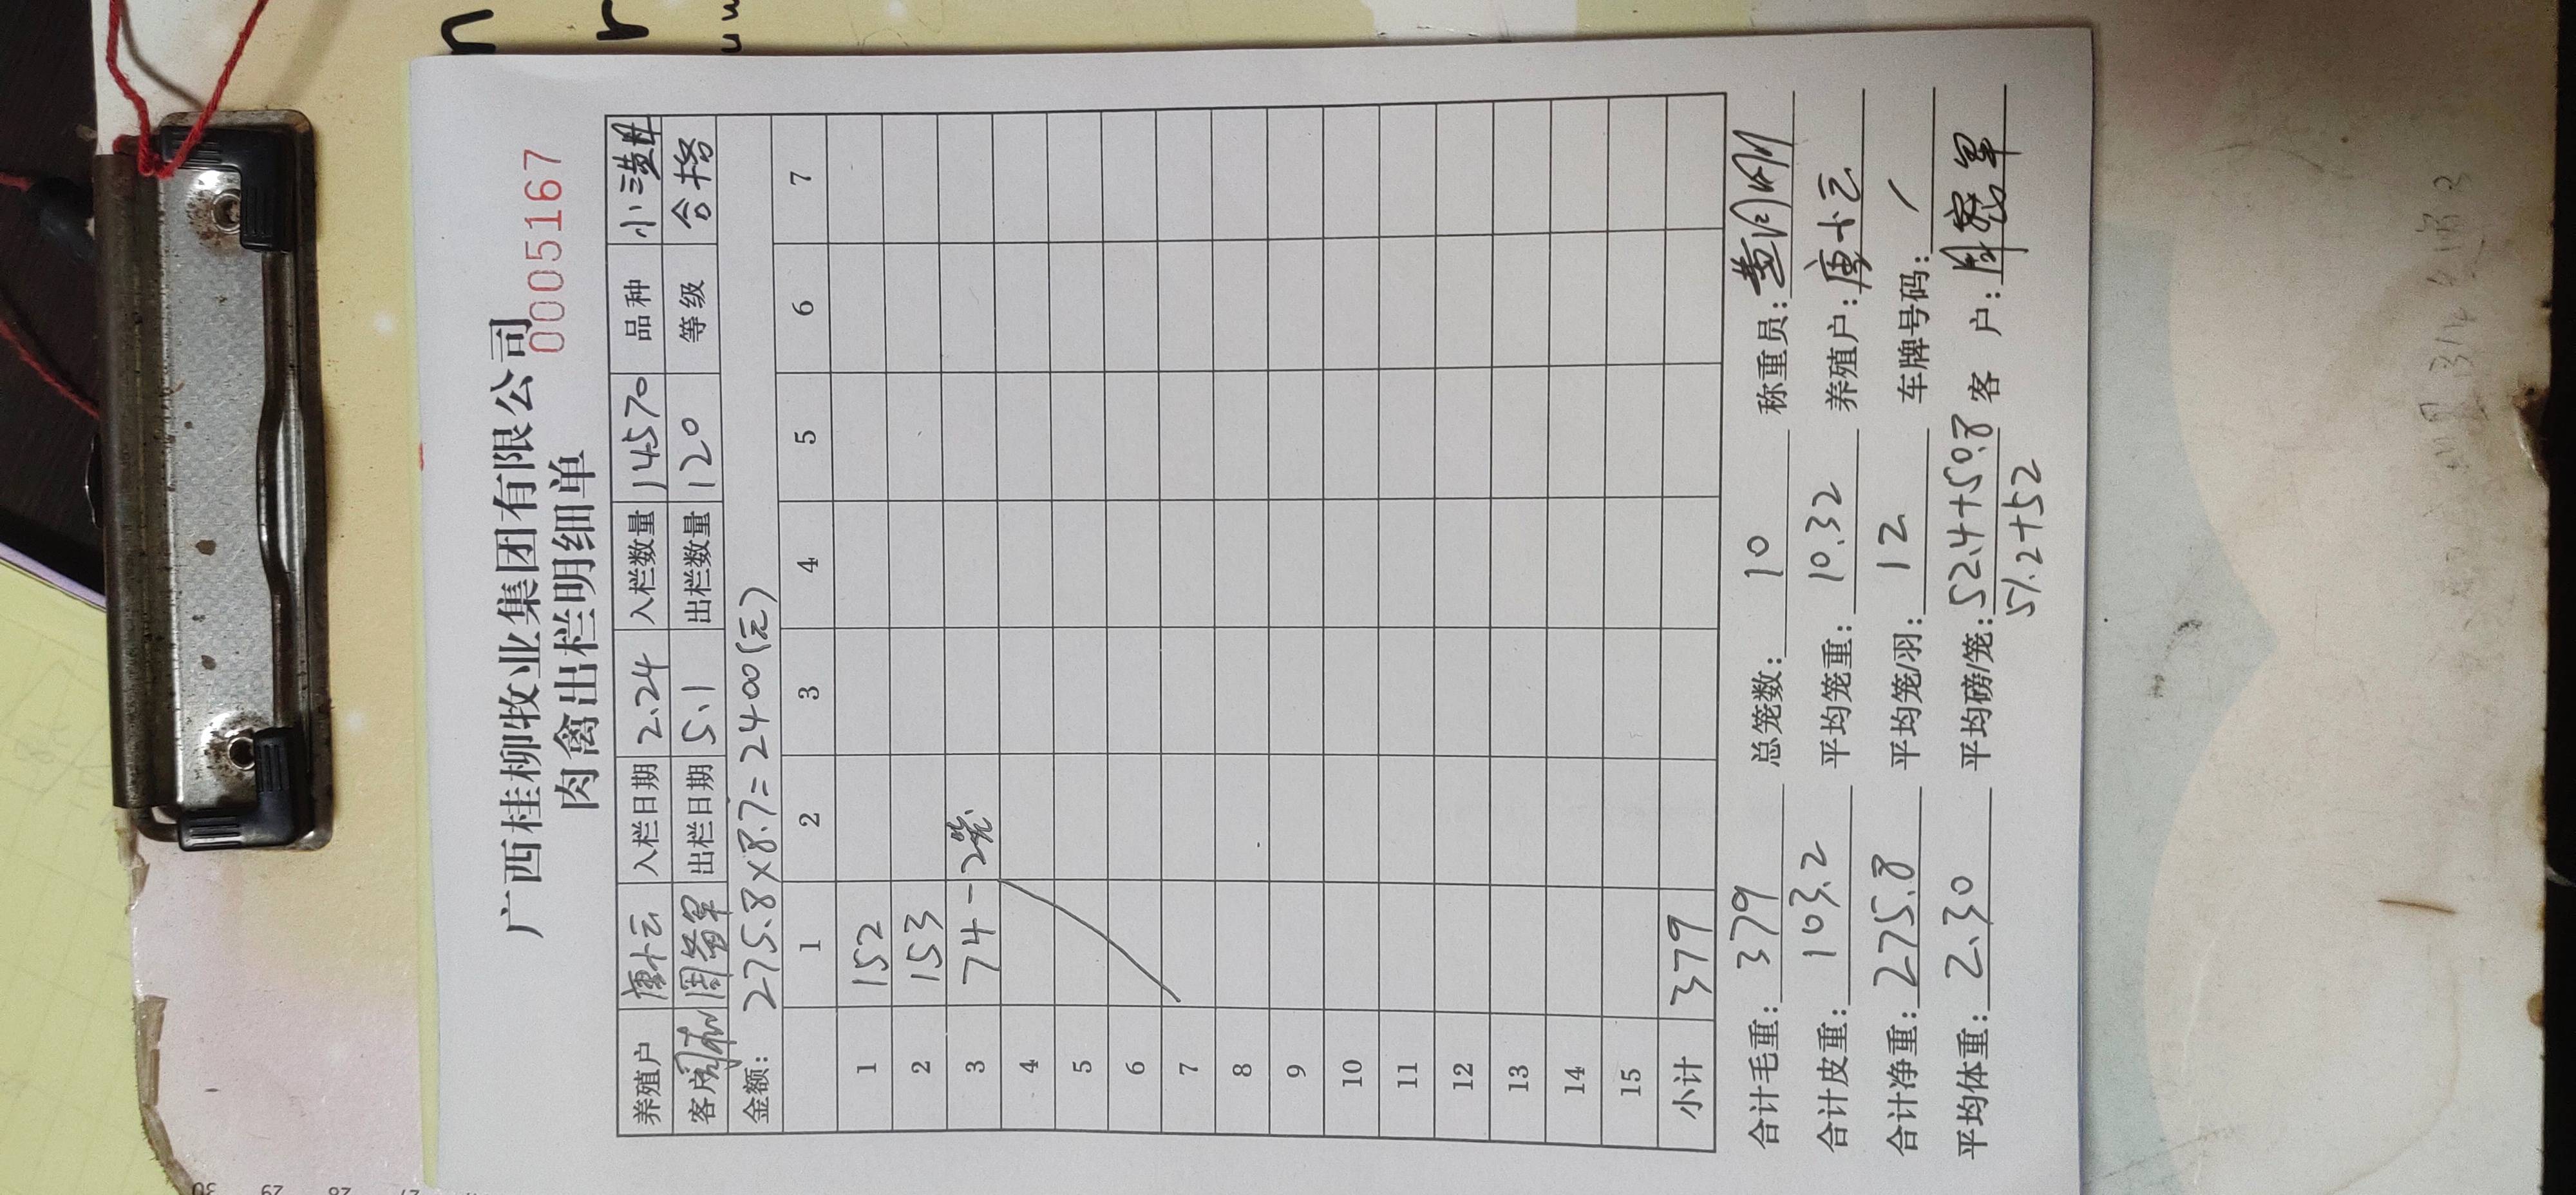 广西桂柳牧业集团有限公司
肉禽出栏明细单
0005167
养殖户 唐小云 入栏日期 2.24 入栏数量 14570 品种 小渣母
客户 出栏日期 5.1 出栏数量 120 等级 合格
金额: 275.8×8.7=2400(元)
1 2 3 4 5 6 7
1 152
2 153
3 74-2笼
4
5
6
7
8
9
10
11
12
13
14
15
小计 379
合计毛重: 379 总笼数: 10 称重员:
合计皮重: 103.2 平均笼重: 10.32 养殖户: 唐小云
合计净重: 275.8 平均笼/羽: 12 车牌号码: /
平均体重: 2.30 平均磅/笼: 52.4+50.8 客 户:
51.2+52